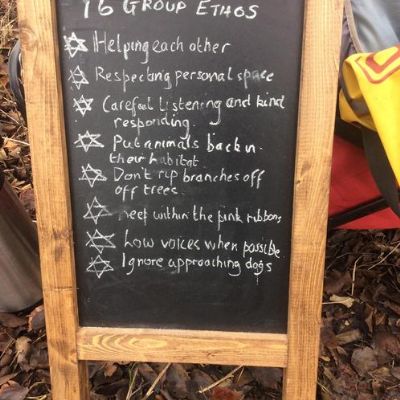 16 GROUP ETHOS
Helping each other
Respecting personal space
Carefeul Listening and kind
responding.
Put animals back in
their habitat.
Don't rip branches off
off trees.
Keep within the pink ribbons
Low voices when possible
Ignore approaching dogs